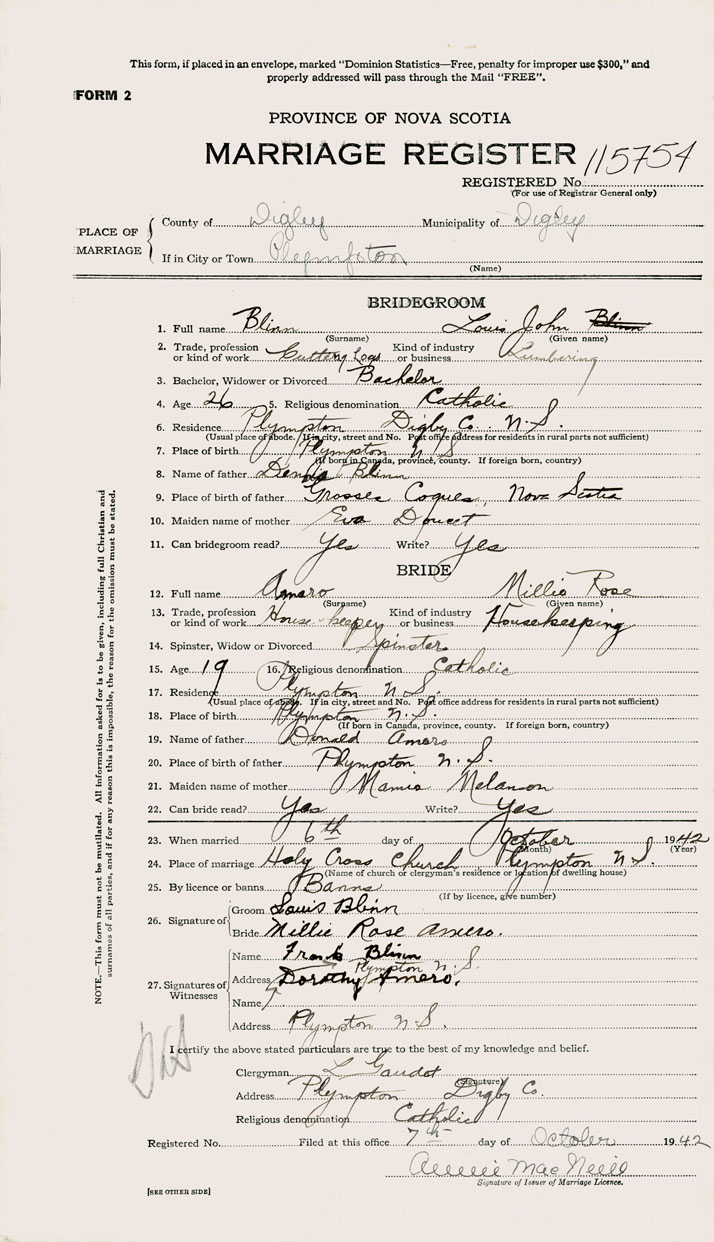 This form, if placed in an envelope, marked "Dominion Statistics—Free, penalty for improper use $300," and
properly addressed will pass through the Mail "FREE".
FORM 2
PROVINCE OF NOVA SCOTIA
MARRIAGE REGISTER 115754
REGISTERED No.
(For use of Registrar General only)
PLACE OF MARRIAGE
County of Digby Municipality of Digby
If in City or Town Plympton
(Name)
BRIDEGROOM
1. Full name Blinn Louis John Blinn
(Surname) (Given name)
2. Trade, profession or kind of work Cutting Logs Kind of industry or business Lumbering
3. Bachelor, Widower or Divorced Bachelor
4. Age 26 5. Religious denomination Catholic
6. Residence Plympton Digby Co. N.S.
(Usual place of abode. If in city, street and No. Post office address for residents in rural parts not sufficient)
7. Place of birth Plympton N S
(If born in Canada, province, county. If foreign born, country)
8. Name of father Denis Blinn
9. Place of birth of father Grosses Coques, Nova Scotia
10. Maiden name of mother Eva Doucet
11. Can bridegroom read? Yes Write? Yes
BRIDE
12. Full name Amero Millie Rose
(Surname) (Given name)
13. Trade, profession or kind of work House-keeper Kind of industry or business Housekeeping
14. Spinster, Widow or Divorced Spinster
15. Age 19 16. Religious denomination Catholic
17. Residence Plympton N S.
(Usual place of abode. If in city, street and No. Post office address for residents in rural parts not sufficient)
18. Place of birth Plympton N. S.
(If born in Canada, province, county. If foreign born, country)
19. Name of father Donald Amero
20. Place of birth of father Plympton N. S.
21. Maiden name of mother Mamie Melanson
22. Can bride read? Yes Write? Yes
23. When married 6th day of October 1942
(Month) (Year)
24. Place of marriage Holy Cross Church Plympton N S.
(Name of church or clergyman's residence or location of dwelling house)
25. By licence or banns Banns
(If by licence, give number)
26. Signature of
Groom Louis Blinn
Bride Millie Rose Amero.
27. Signatures of Witnesses
Name Frank Blinn
Plympton N. S.
Address Dorothy Amero.
Name
Address Plympton N-S.
I certify the above stated particulars are true to the best of my knowledge and belief.
Clergyman L Gaudet
(Signature)
Address Plympton Digby Co.
Religious denomination Catholic
Registered No. Filed at this office 7th day of October 1942
Annie MacNeill
Signature of Issuer of Marriage Licence.
[SEE OTHER SIDE]
NOTE.—This form must not be mutilated. All information asked for is to be given, including full Christian and
surnames of all parties, and if for any reason this is impossible, the reason for the omission must be stated.